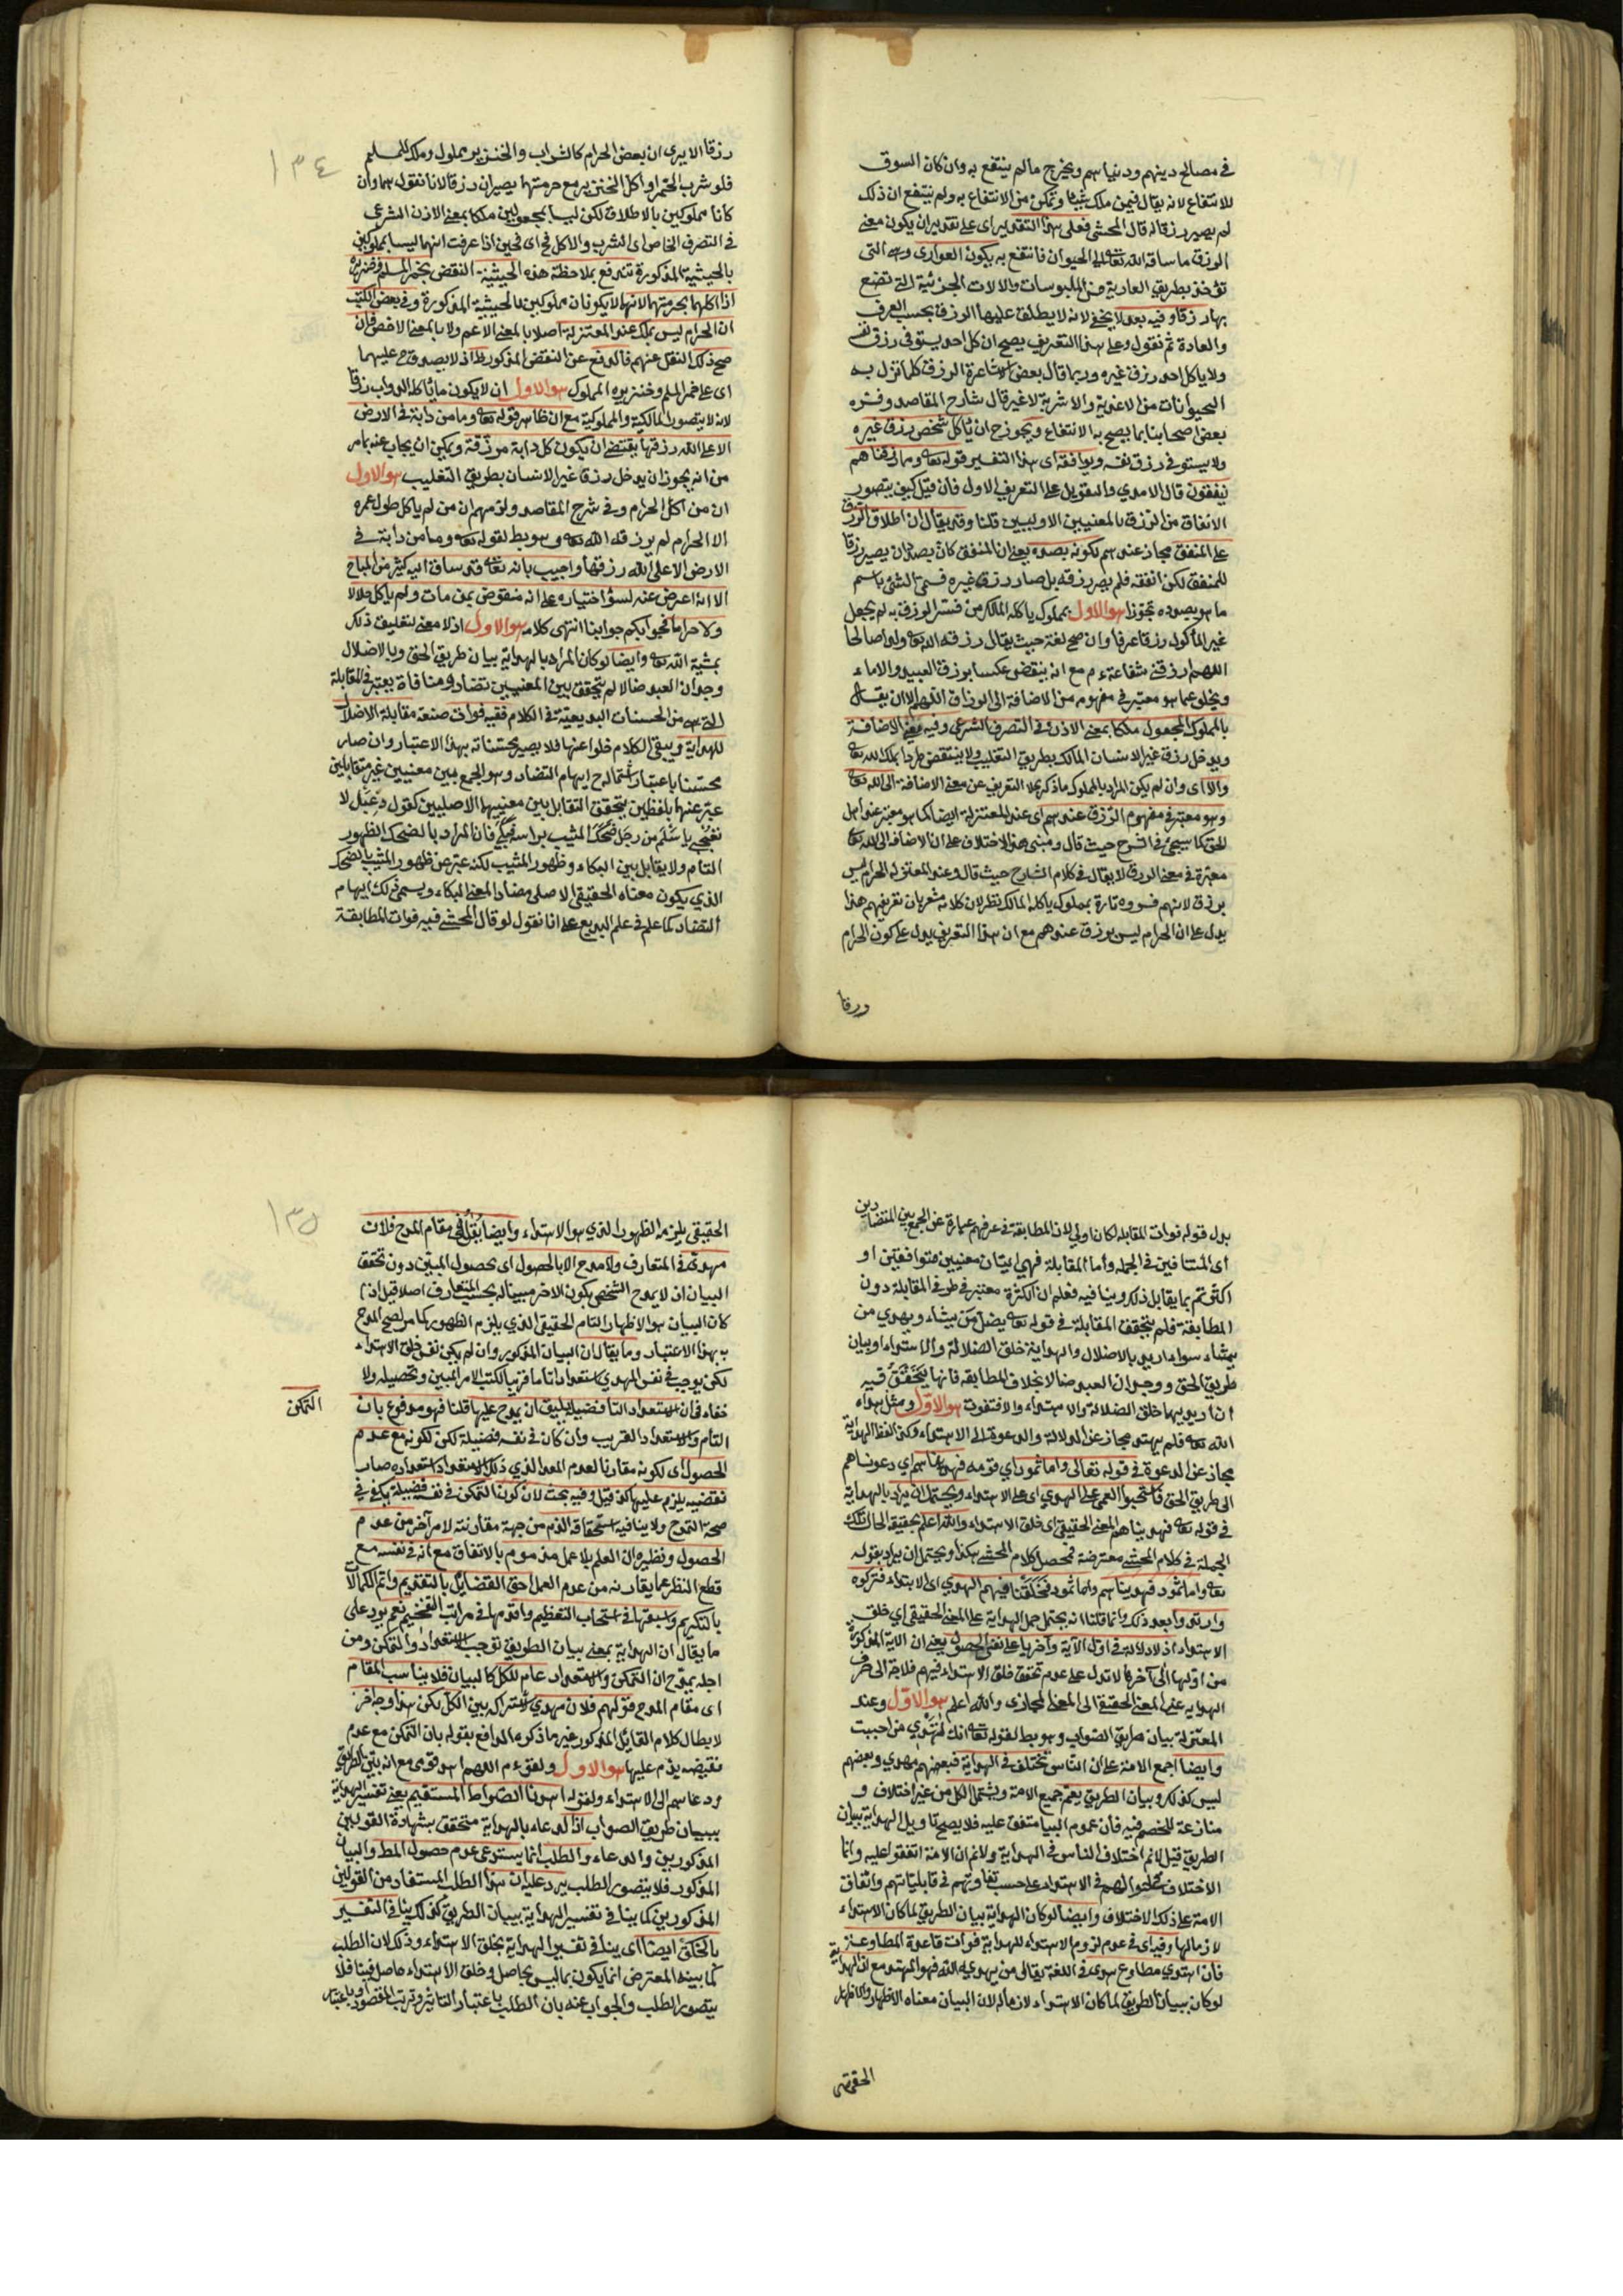 في مصالح دينهم ودنياهم ويخرج ما لم ينتفع به وان كان السوق
للانتفاع لانه يقال فيمن ملك شيئا وتمكن من الانتفاع به ولم ينتفع ان ذلك
لم يصير رزقا له قال المحشى فعلى هذا التقدير اى على تقدير ان يكون معنى
الرزق ما ساقه الله تعالى الى الحيوان فانتفع به يكون العوارى وهى التى
تؤخذ بطريق العارية من الملبوسات والالات الجزئية التى تضع
بها رزقا وفيه بعد لا يخفى لانه لا يطلق عليها الرزق بحسب العرف
والعادة ثم نقول وعلى هذا التعريف يصح ان كل احد يستوفى رزق نفسه
ولا ياكل احد رزق غيره وربما قال بعض الاشاعرة الرزق كلما تنزل به
الحيوانات من الاغذية والاشربة لا غير قال شارح المقاصد وفسره
بعض اصحابنا بما يصح به الانتفاع ويجوز ح ان ياكل شخص رزق غيره
ولا يستوفى رزق نفسه ويوافقه اى هذا التفسير قوله تعالى ومما رزقناهم
ينفقون قال الامدي والتعويل على التعريف الاول فان قيل كيف يتصور
الانفاق من الرزق بالمعنيين الاولين قلنا وقد يقال ان اطلاق الرزق
على المنفق مجاز عندهم لكونه بصدده يعنى ان المنفق كان بصدد ان يصير رزقا
للمنفق لكن انفقه فلم يصر رزقه بل صار رزق غيره فسمى الشئ باسم
ما هو بصدده تجوزا هو الاول بمملوك ياكله المالك من فسر الرزق به لم يجعل
غير الماكول رزقا عرفا وان صح لغة حيث يقال رزقه الله تعالى ولدا صالحا
اللهم ارزقنى شفاعته م مع انه ينتقض عكسا برزق العبيد والاماء
ويخلو عما هو معتبر في مفهومه من الاضافة الى الرزاق اللهم الا ان يقال
بالمملوك المجعول ملكا بمعنى الاذن في التصرف الشرعى وفيه معنى الاضافة
ويدخل رزق غير الانسان المالك بطريق التغليب ولا ينتقض طردا بملك الله تعالى
والا اى وان لم يكن المراد بالمملوك ما ذكر يخلا التعريف عن معنى الاضافة الى الله تعالى
وهو معتبر في مفهوم الرزق عندهم اى عند المعتزلة ايضا كما هو معتبر عند اهل
الحق كما سيجئ في الشرح حيث قال ومبنى هذا الاختلاف على ان الاضافة الى الله تعالى
معتبرة في معنى الرزق لا يقال في كلام الشارح حيث قال وعند المعتزلة الحرام ليس
برزق لانهم فسروه تارة بمملوك ياكله المالك نظر لان كلامه مشعر بان تعريفهم هذا
يدل على ان الحرام ليس برزق عندهم مع ان هذا التعريف يدل على كون الحرام
رزقا
١٣٤
رزقا الا يرى ان بعض الحرام كالشراب والخنزير مملوك وملك للمسلم
فلو شرب الخمر او اكل الخنزير مع حرمتهما يصيران رزقا لانا نقول هما وان
كانا مملوكين بالاطلاق لكن ليسا بمجعولين ملكا بمعنى الاذن الشرعى
في التصرف الخاص اى الشرب والاكل فح اى فحين اذا عرفت انهما ليسا بمملوكين
بالحيثية المذكورة تندفع بملاحظة هذه الحيثية النقض بخمر المسلم وخنزيره
اذا اكلهما بحرمتهما لانهما لا يكونان مملوكين بالحيثية المذكورة وفي بعض الكتب
ان الحرام ليس بملك عند المعتزلة اصلا بالمعنى الاعم ولا بالمعنى الاخص فان
صح ذلك النقل عنهم فالدفع عن النقض المذكور ظ اذ لا يصدق ح عليهما
اى على خمر المسلم وخنزيره المملوك هو الاول ان لا يكون ما ياكله الدواب رزقا
لانه لا يتصور المالكية والمملوكية مع ان ظاهر قوله تعالى وما من دابة في الارض
الا على الله رزقها يقتضى ان يكون كل دابة مرزقة ويمكن ان يجاب عنه بما مر
من انه يجوز ان يدخل رزقا غير الانسان بطريق التغليب هو الاول
ان من اكل الحرام وفي شرح المقاصد ولزمهم ان من لم ياكل طول عمره
الا الحرام لم يرزقه الله تعالى وهو بط لقوله تعالى وما من دابة في
الارض الا على الله رزقها واجيب بانه تعالى قد ساق اليه كثيرا من المباح
الا انه اعرض عنه لسوء اختياره على انه منقوض بمن مات ولم ياكل حلالا
ولا حراما فجوابكم جوابنا انتهى كلامه هو الاول اذ لا معنى لتعليق ذلك
بمشية الله تعالى وايضا لو كان المراد بالهداية بيان طريق الحق وبالاضلال
وجدان العبد ضالا لم يتحقق بين المعنيين تضاد ومنافاة يعتبر في المقابلة
التى هى من المحسنات البديعية في الكلام ففيه فوات صنعة مقابلة الاضلال
للهداية ويبقى الكلام خلوا عنها فلا يصير محسناته بهذا الاعتبار وان صار
محسنا باعتبار اشتماله ح ايهام التضاد وهو الجمع بين معنيين غير متقابلين
عبر عنهما بلفظين يتحقق التقابل بين معنييهما الاصليين كقول دعبل لا
تعجبى يا سلم من رجل ضحك المشيب براسه فبكى فان المراد بالضحك الظهور
التام ولا يقابل بين البكاء وظهور المشيب لكنه عبر عن ظهور المشيب بالضحك
الذي يكون معناه الحقيقى الاصلى مضادا لمعنى البكاء ويسمى ذلك ايهام
التضاد كما علم في علم البديع على انا نقول لو قال المحشى فيه فوات المطابقة
بدل قوله فوات المقابلة لكان اولى لان المطابقة في عرفهم عبارة عن الجمع بين المتضادين
اى المتنافيين في الجملة واما المقابلة فهى اتيان معنيين متوافقين او
اكثر ثم بما يقابل ذلك وينافيه فعلم ان الكثرة معتبر في طرفى المقابلة دون
المطابقة فلم يتحقق المقابلة في قوله تعالى يضل من يشاء ويهدي من
يشاء سواء اريد بالاضلال والهداية خلق الضلالة والاهتداء او بيان
طريق الحق ووجدان العبد ضالا بخلاف المطابقة فانها يتحقق فيه
ان اريد بهما خلق الضلالة والاهتداء والا فتفوت هو الاول ومثل هداه
الله تعالى فلم يهتد مجاز عن الدلالة والدعوة الى الاهتداء وكذا لفظ الهداية
مجاز عن الدعوة في قوله تعالى واما ثمود اى قومه فهديناهم اي دعوناهم
الى طريق الحق فاستحبوا العمى على الهدى اى على الاهتداء ويحتمل ان يراد بالهداية
في قوله تعالى فهديناهم المعنى الحقيقى اى خلق الاهتداء والله اعلم بحقيقة الحال تلك
الجملة في كلام المحشى معترضة فمحصل كلام المحشى هكذا ويحتمل ان يراد بقوله
تعالى واما ثمود فهديناهم واما ثمود فخلقنا فيهم الهدى اى الاهتداء فتركوه
وارتدوا بعد ذلك وانما قلنا انه يحتمل حمل الهداية على المعنى الحقيقى اى خلق
الاهتداء اذ لا دلالة في اول الآية وآخرها على نفى الحصول يعنى ان الآية المذكورة
من اولها الى آخرها لا تدل على عدم تحقق خلق الاهتداء فيهم فلا حاجة الى صرف
الهداية عن المعنى الحقيقى الى المعنى المجازى والله اعلم هو الاول وعند
المعتزلة بيان طريق الصواب وهو بط لقوله تعالى انك لا تهدي من احببت
وايضا اجمع الامة على ان الناس تختلف في الهداية فبعضهم مهدي وبعضهم
ليس كذلك وبيان الطريق يعم جميع الامة ويشتمل الكل من غير اختلاف و
منازعة للخصم فيه فان عموم البيان متفق عليه فلا يصح تاويل الهداية ببيان
الطريق قيل لا نم اختلاف الناس في الهداية ولا نم ان الامة اتفقوا عليه وانما
الاختلاف في الاهتداء على حسب تفاوتهم في قابلياتهم واتفاق
الامة على ذلك الاختلاف وايضا لو كان الهداية بيان الطريق لما كان الاهتداء
لازما لها وفيه اى في عدم لزوم الاهتداء للهداية فوات قاعدة المطاوعة
فان اهتدي مطاوع هدى في اللغة يقال من يهدي الله فهو المهتد مع ان الهداية
لو كان بيان الطريق لما كان الاهتداء لازما له لان البيان معناه الاظهار والاظهار
الحقيقى
١٣٥
الحقيقى يلزمه الظهور الذي هو الاهتداء وايضا يقال في مقام المدح فلان
مهدى في المتعارف ولا مدح الا بالحصول اى بحصول المبين دون تحقق
البيان اذ لا يمدح الشخص بكون الاخر مبينا له بحسب المتعارف اصلا قيل اذا
كان البيان هو الاظهار التام الحقيقى الذي يلزم الظهور كما مر لصح المدح
به بهذا الاعتبار وما يقال ان البيان المذكور وان لم يكن نفس خلق الاهتداء
لكن يوجب في نفس المهدي استعدادا تاما قريبا لكسب الامر المبين وتحصيله ولا
خفاء في ان الاستعداد التام فضيلة يليق ان يمدح عليها قلنا فهو مدفوع بان
التمكن
التام والاستعداد القريب وان كان في نفسه فضيلة لكن لكونه مع عدم
الحصول اى لكونه مقارنا لعدم المعد الذي ذلك الاستعداد استعداده صار
نقيضه يلزم عليها كذا قيل وفيه بحث لان كون التمكن في نفسه فضيلة يكفى في
صحة التمدح ولا ينافيه استحقاقه الذم من جهة مقارنته لامر آخر من عدم
الحصول ونظيره ان العلم بلا عمل مذموم بالاتفاق مع انه في نفسه مع
قطع النظر عما يقارنه من عدم العمل احق الفضايل بالتقديم واتم الكمالات
بالتكريم واسبقها في استحباب التعظيم واقدمها في مراتب التفخيم نعم يرد على
ما يقال ان الهداية بمعنى بيان الطريق توجب الاستعداد والتمكن ومن
اجله يمدح ان التمكن والاستعداد عام للكل كالبيان فلا يناسب المقام
اى مقام المدح قولهم فلان مهدي لاشتراكه بين الكل لكن هذا وجه آخر
لابطال كلام القائل المذكور غير ما ذكره الدافع بقوله بان التمكن مع عدم
نقيضه يذم عليها هو الاول ولقوله م اللهم اهد قومى مع انه بين الطريق
ودعاهم الى الاهتداء ولقوله اهدنا الصراط المستقيم يعنى تفسير الهداية
ببيان طريق الصواب اذ الدعاء بالهداية متحقق بشهادة القولين
المذكورين والدعاء والطلب انما يستدعى عدم حصول المط والبيان
المذكور فلا يتصور الطلب يرد عليه ان هذا الطلب المستفاد من القولين
المذكورين كما ينافى تفسير الهداية ببيان الطريق كذلك ينافى التفسير
بالخلق ايضا اى ينافى تفسير الهداية بخلق الاهتداء وذلك لان الطلب
كما بينه المعترض انما يكون بما ليس بحاصل وخلق الاهتداء حاصل فينا فلا
يتصور الطلب والجواب عنه بان الطلب باعتبار التاثير وترتب المقصود باعتبار